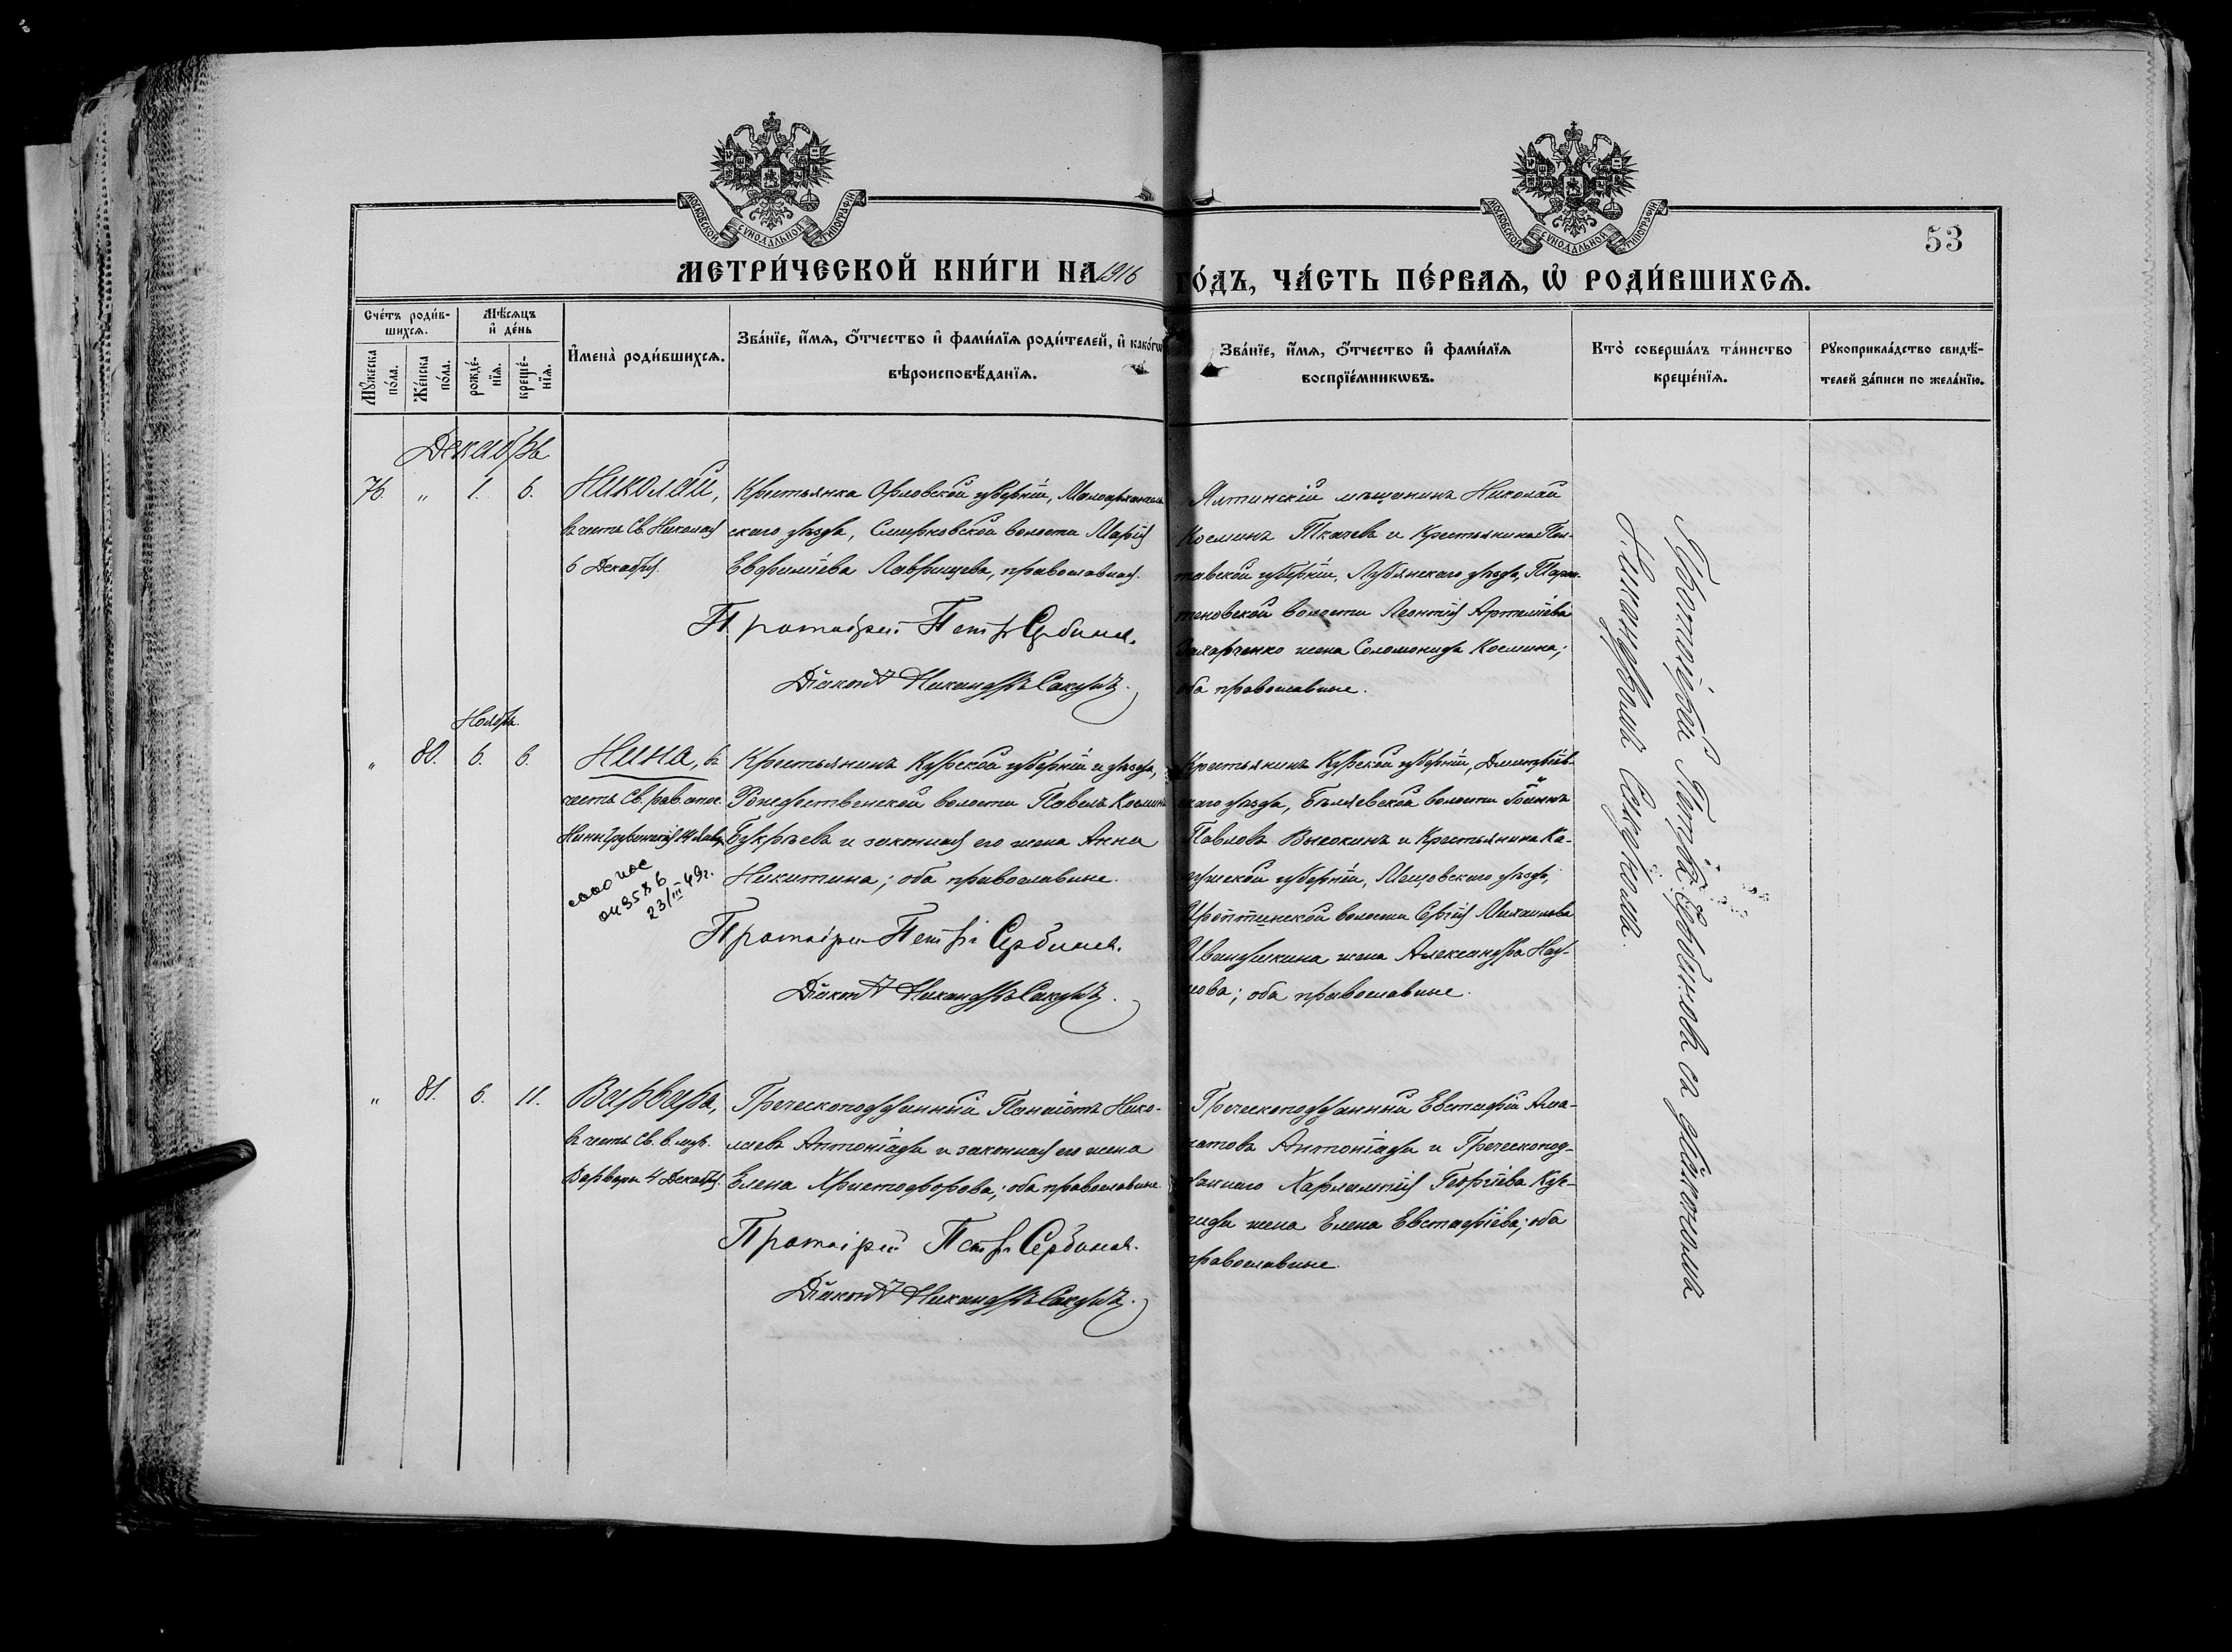 МОСКОВСКОЙ СѴНОДАЛЬНОЙ ТИПОГРАФІИ
МОСКОВСКОЙ СѴНОДАЛЬНОЙ ТИПОГРАФІИ
53
МЕТРИ́ЧЕСКОЙ КНИ́ГИ НА 1916 ГО́ДЪ, ЧА́СТЬ ПЕ́РВАѦ, Ѡ҆ РОДИ́ВШИХСѦ.
Сче́тъ роди́в-
шихсѧ.
Мꙋ́жеска
по́ла.
Же́нска
по́ла.
Мѣ́сѧцъ
и҆ де́нь
рожде́-
нїѧ.
креще́-
нїѧ.
И҆мена̀ роди́вшихсѧ.
Зва́нїе, и҆́мѧ, ѻ҆́тчество и҆ фами́лїѧ роди́телей, и҆ како́гѡ
вѣроисповѣ́данїѧ.
Зва́нїе, и҆́мѧ, ѻ҆́тчество и҆ фами́лїѧ
воспрїе́мникѡвъ.
Кто̀ соверша́лъ та́инство
креще́нїѧ.
Рꙋкоприкла́дство свидѣ́-
телей за́писи по жела́нїю.
Декабрь
76. " 1. 6.
Николай,
въ честь Св. Николая
6 Декабря.
Крестьянка Орловской губерніи, Малоархангель
скаго уѣзда, Смирновской волости Марія
Евфиміева Лаврищева, православная.
Протоіерей Петръ Сербиновъ.
Діаконъ Никандръ Сакунъ.
Ялтинскій мѣщанинъ Николай
Косминъ Ткачевъ и Крестьянина Пол-
тавской губерніи, Лубянскаго уѣзда,
теновской волости Леонтія Артеміева
Захарченко жена Соломонида Космина;
оба православные.
Ноябрь.
" 80. 6. 6.
Нина, въ
честь Св. рав. апос.
Нины Грузинскія 14 Янв.
23/III 49г.
Крестьянинъ Курской губерніи и уѣзда,
Рождественской волости Павелъ Косминъ
Букрѣевъ и законная его жена Анна
Никитина; оба православные.
Протоіерей Петръ Сербиновъ.
Діаконъ Никандръ Сакунъ.
Крестьянинъ Курской губерніи, Дмитріев-
скаго уѣзда, Бѣляевской волости Іоаннъ
Павловъ Высокинъ и Крестьянина Ка-
лужской губерніи, Мещовскаго уѣзда,
волости Сергія Михаилова
Иванушкина жена Александра Нау-
мова; оба православные.
" 81. 6. 11.
Варвара,
въ честь Св. в. муч.
Варвары 4 Декабря.
Греческоподданный Панаіотъ Нико-
лаевъ Антоніади и законная его жена
Елена Христофорова; оба православные.
Протоіерей Петръ Сербиновъ.
Діаконъ Никандръ Сакунъ.
Греческоподданный Евстафій
Антоніади и Греческопод-
даннаго Харлампія Георгіева
жена Елена Евстафіева; оба
православные.
Протоіерей Петръ Сербиновъ съ діакономъ
Никандромъ Сакуномъ.